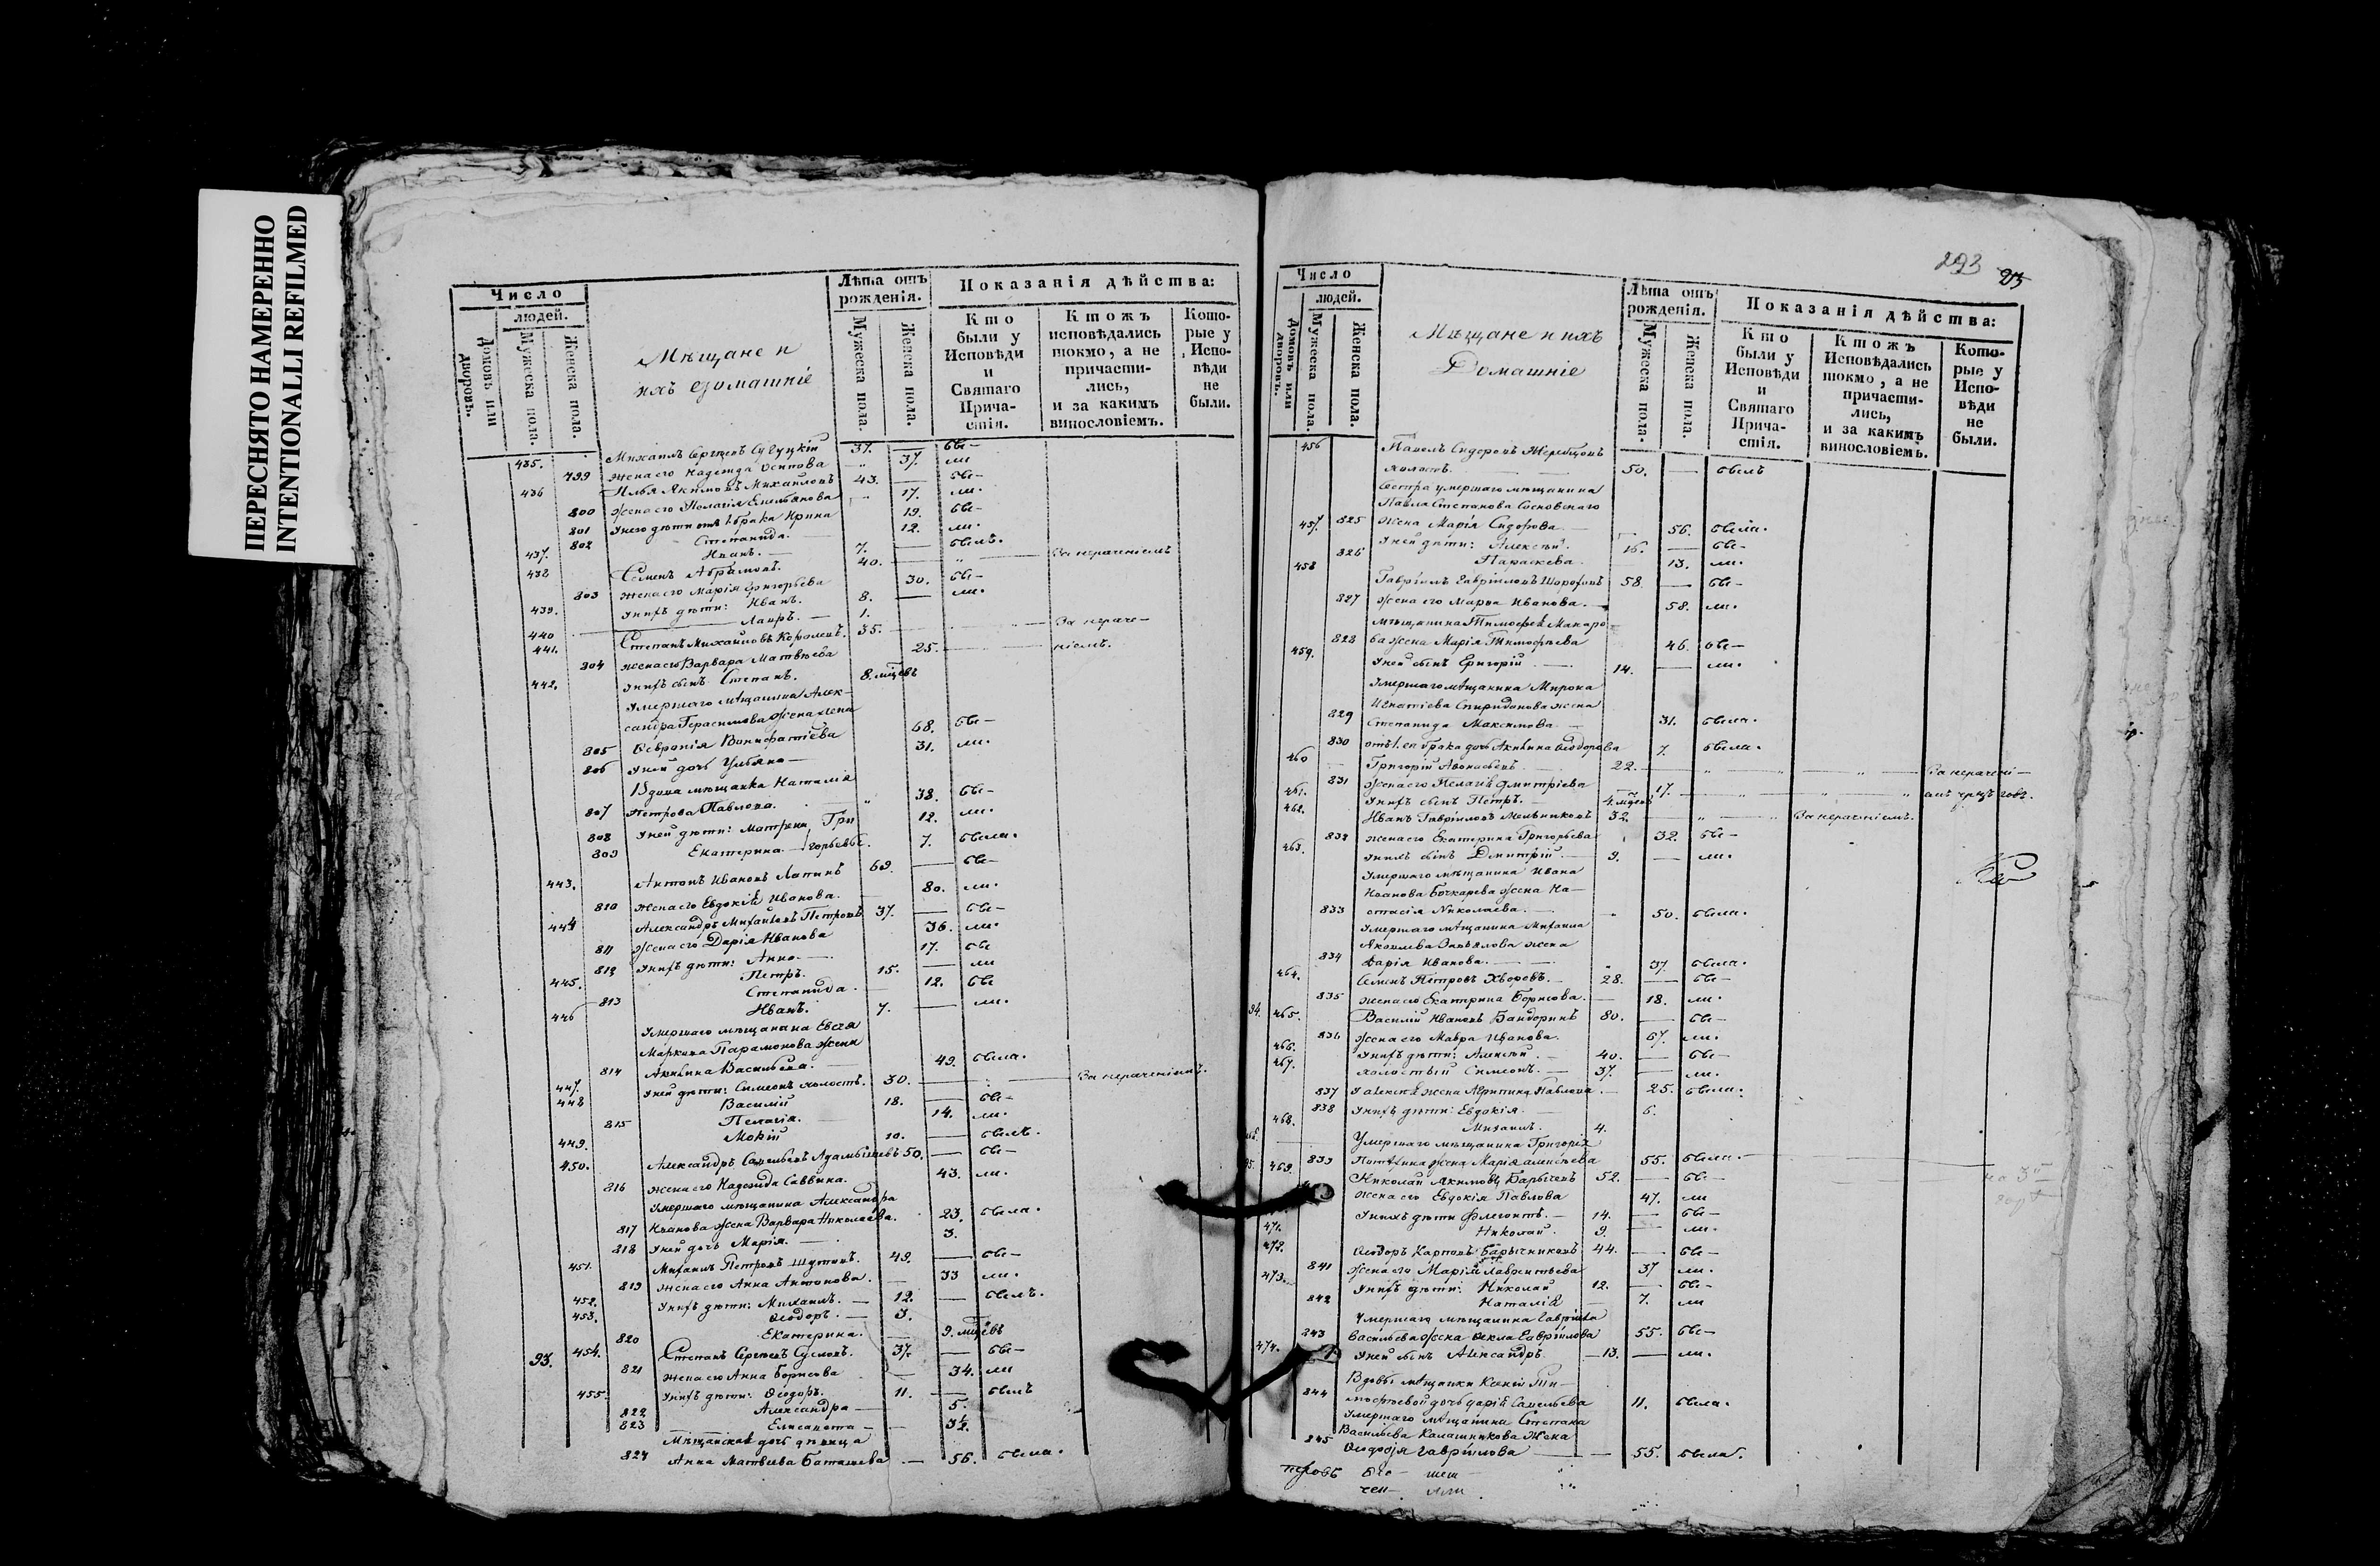 ПЕРЕСНЯТО НАМЕРЕННО
INTENTIONALLI REFILMED
Число
людей.
Домовъ или дворовъ.
Мужеска пола.
Женска пола.
Мѣщане и
ихъ домашніе
Лѣта отъ рожденія.
Мужеска пола.
Женска пола.
Показанія дѣйства:
Кто были у Исповѣди и Святаго Причастія.
Ктожъ исповѣдались токмо, а не причастились, и за какимъ винословіемъ.
Которые у Исповѣди не были.
435. Михаилъ Сергѣевъ 37. бы-
799 Жена его Надежда Осипова 37. ли
436 Илья Якимовъ Михайловъ 43. бы-
800 Жена его Пелагія Емельянова 17. ли.
801 У него дѣти отъ 1 брака Ирина 19. бы-
802 Степанида. 12. ли.
437. Иванъ. 7. былъ.
438 Семенъ Абрамовъ. 40. За нераченіемъ
803 Жена его Марія Григорьева 30. бы-
439. У нихъ дѣти: Иванъ. 8. ли.
440 Лавръ. 1.
441. Степанъ Михайловъ Королевъ. 35. За нераче-
804 Жена его Варвара Матвѣева 25. ніемъ.
442. У нихъ сынъ Степанъ. 8. мцевъ
Умершаго мѣщанина Алек-
сандра Герасимова жена
805 Февронія Вонифатіева 68. бы-
806 У ней дочь Ульяна 31. ли.
Вдова мѣщанка Наталія
807 Петрова Павлова. 38. бы-
808 У ней дѣти: Матрена Гри 12. ли.
809 Екатерина. горьевы. 7. была.
443. Антонъ Ивановъ Лапинъ 69. бы-
810 Жена его Евдокія Иванова. 80. ли.
444 Александръ Михайловъ Петровъ 37. бы-
811 Жена его Дарія Иванова 36. ли.
812 У нихъ дѣти: Анна. 17. бы
445. Петръ. 15. ли
813 Степанида. 12. бы
446 Иванъ. 7. ли.
Умершаго мѣщанина Евсея
Маркина Парамонова жена
814 Акилина Васильева. 49. была.
447. У ней дѣти: Симеонъ холостъ. 30. За нераченіемъ.
448 Василій 18. бы-
815 Пелагія. 14. ли.
449. Мокій 10. былъ.
450. Александръ Савельевъ 50. бы-
816 Жена его Надежда Саввина. 43. ли.
Умершаго мѣщанина Александра
817 Иванова жена Варвара Николаева. 23. была.
818 У ней дочь Марія. 3.
451. Михаилъ Петровъ Шутовъ. 49. бы-
819 Жена его Анна Антонова. 33 ли.
452. У нихъ дѣти: Михаилъ. 12. былъ.
453. Ѳеодоръ. 3.
820 Екатерина. 9. мцевъ
93. 454. Степанъ Сергѣевъ Сусловъ. 37. бы-
821 Жена его Анна Борисова 34. ли
455. У нихъ дѣти: Ѳеодоръ. 11. былъ
822 Александра 5.
823 Елисавета
Мѣщанская дочь дѣвица
824 Анна Матвеева Баташева 56. была.
293
Число
людей.
Домовъ или дворовъ.
Мужеска пола.
Женска пола.
Мѣщане и ихъ
Домашніе
Лѣта отъ рожденія.
Мужеска пола.
Женска пола.
Показанія дѣйства:
Кто были у Исповѣди и Святаго Причастія.
Ктожъ Исповѣдались токмо, а не причастились, и за какимъ винословіемъ.
Которые у Исповѣди не были.
456 Павелъ Сидоровъ Жеребцовъ
холостъ. 50. былъ
Сестра умершаго мѣщанина
Павла Степанова Сосновскаго
825 жена Марія Сидорова. 56. была.
457. У ней дѣти: Алексѣй. 16. бы-
826 Параскева. 13. ли.
458 Гавріилъ Гавріиловъ 58. бы-
827 Жена его Марѳа Иванова. 58. ли.
мѣщанина Тимоѳея Макаро-
828 ва жена Марія Тимоѳеева 46. бы-
459. У ней сынъ Григорій 14. ли.
Умершаго мѣщанина Мирона
Игнатіева Спиридонова жена
829 Степанида Максимова. 31. была.
830 отъ 1. ея брака дочь Акилина Ѳеодорова 7. была.
460 Григорій Аѳонасьевъ. 22. За нерачені-
831 Жена его Пелагія Дмитріева 17. емъ
461. У нихъ сынъ Петръ. 4. мцевъ
462. Иванъ Гавріиловъ Мельниковъ 32. За нераченіемъ.
832 Жена его Екатерина Григорьева 32. бы-
463. У нихъ сынъ Димитрій. 9. ли.
Умершаго мѣщанина Ивана
Иванова Бочкарева жена На-
833 стасія Николаева. 50. была.
Умершаго мѣщанина Михаила
Яковлева жена
834 Дарія Иванова. 37. была.
464. Семенъ Петровъ Хворовъ. 28. бы-
835 Жена его Екатерина Борисова. 18. ли.
94. 465. Василій Ивановъ Бандоринъ 80. бы-
836 Жена его Мавра Иванова. 67. ли.
466. У нихъ дѣти: Алексѣй. 40. бы-
467. холостый Симеонъ. 37. ли.
837 У Алексѣя жена Агрипина Павлова. 25. была.
838 У нихъ дѣти: Евдокія. 6.
468. Михаилъ. 4.
Умершаго мѣщанина Григорія
839 Потапина жена Марія Алексѣева 55. была.
95. 469. Николай Акимовъ Барычевъ 52. бы-
Жена его Евдокія Павлова 47. ли
У нихъ дѣти Флегонтъ. 14. бы-
471. Николай. 9. ли.
472. Ѳеодоръ Карповъ Барычниковъ 44. бы-
841 Жена его Марія Лаврентьева 37 ли.
473. У нихъ дѣти: Николай 12. бы-
842 Наталія 7. ли
Умершаго мѣщанина Гавріила
843 Васильева жена Ѳекла Гавріилова 55. бы-
474. У ней сынъ Александръ. 13. ли.
Вдовы мѣщанки Ксеніи Ти-
844 моѳеевой дочь Дарія Савельева 11. была.
Умершаго мѣщанина Степана
Васильева Калашникова жена
845 Ѳеодосія Гаврилова 55. была.